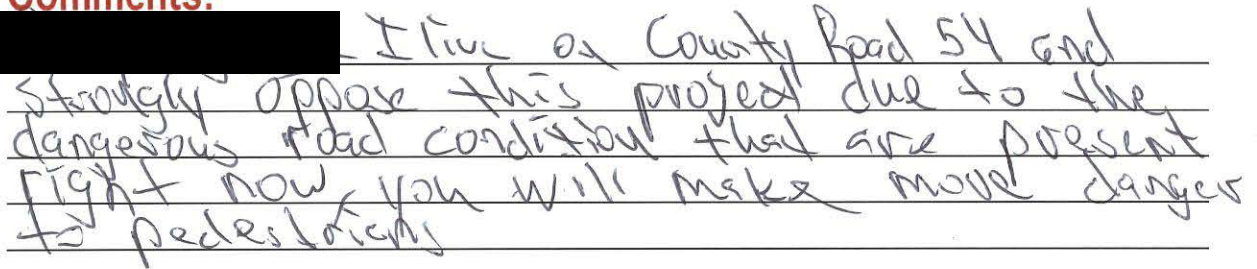 Comments:
- I live on County Road 54 and
strongly oppose this project due to the
dangerous road condition that are present
right now, you will make more danger
to pedestrians